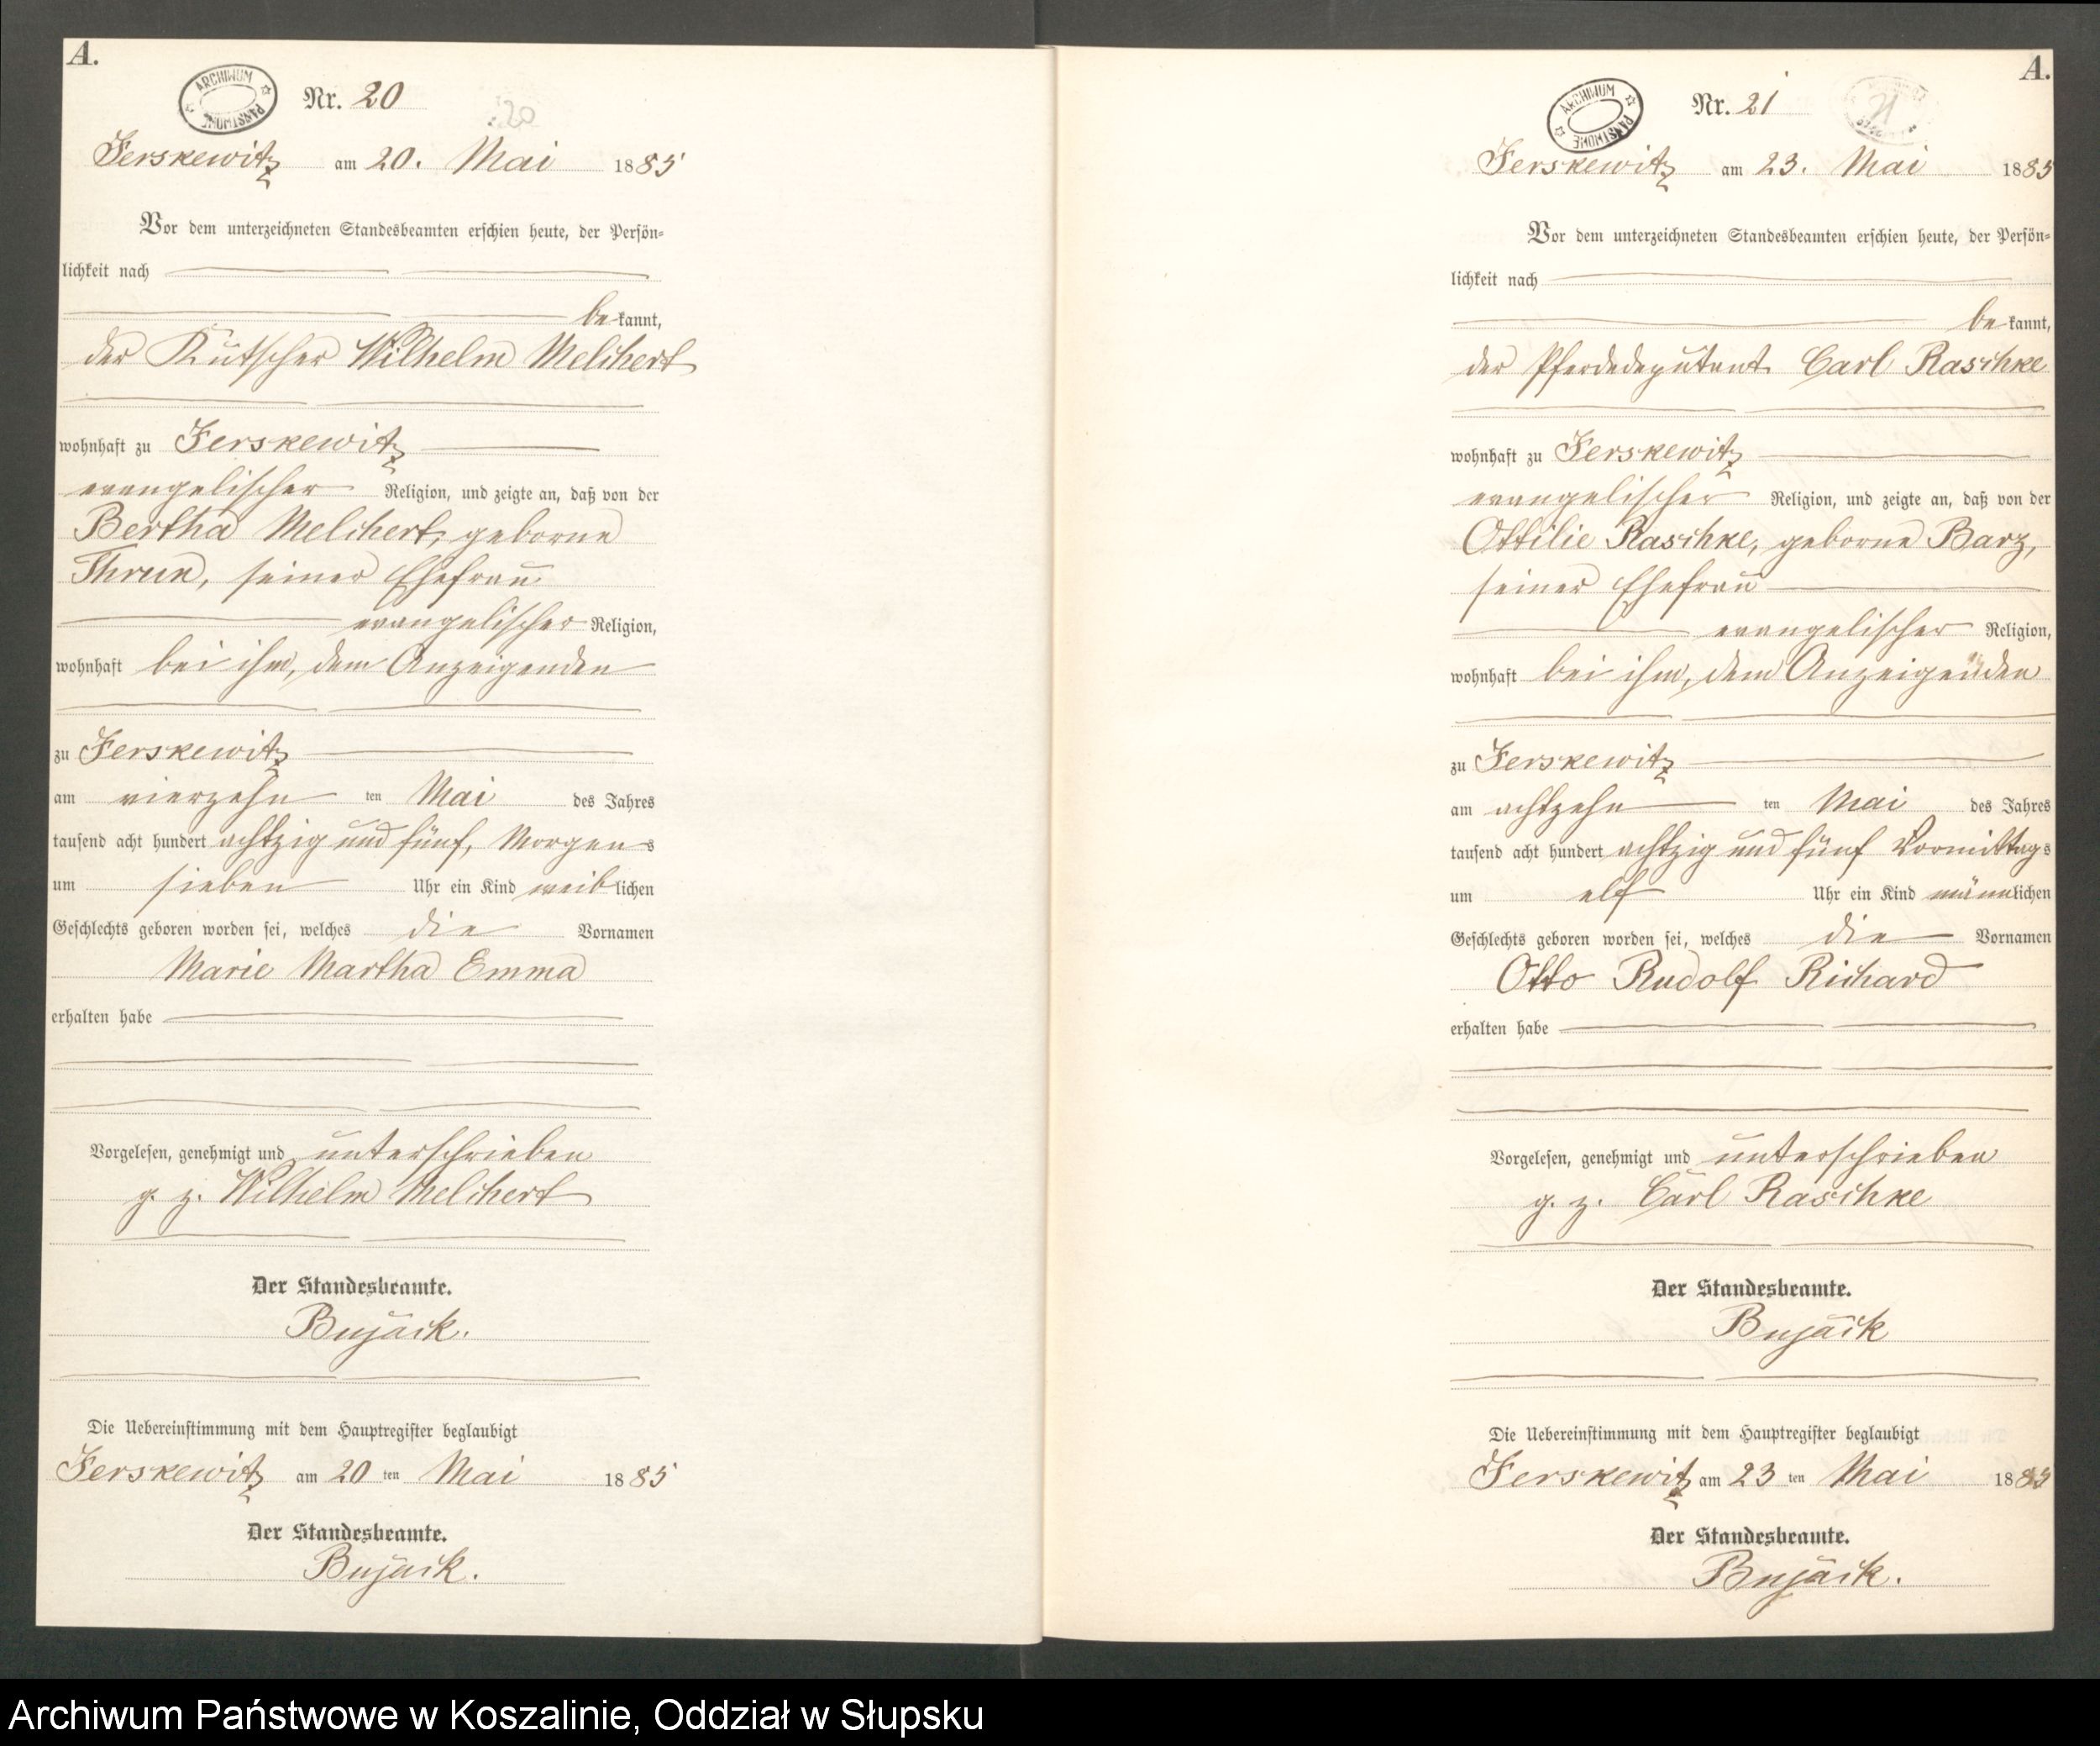 A.
ARCHIWUM PAŃSTWOWE
Nr. 20
20
Jerskewitz am 20. Mai 1885
Vor dem unterzeichneten Standesbeamten erschien heute, der Persön-
lichkeit nach
bekannt,
der Kutscher Wilhelm Melchert
wohnhaft zu Jerskewitz
evangelischer Religion, und zeigte an, daß von der
Bertha Melchert, geborne
Thrun, seiner Ehefrau
evangelischer Religion,
wohnhaft bei ihm, dem Anzeigenden
zu Jerskewitz
am vierzehn ten Mai des Jahres
tausend acht hundert achtzig und fünf, Morgens
um sieben Uhr ein Kind weiblichen
Geschlechts geboren worden sei, welches die Vornamen
Marie Martha Emma
erhalten habe
Vorgelesen, genehmigt und unterschrieben
g. z. Wilhelm Melchert
Der Standesbeamte.
Bujack.
Die Uebereinstimmung mit dem Hauptregister beglaubigt
Jerskewitz am 20 ten Mai 1885
Der Standesbeamte.
Bujack.
A.
ARCHIWUM PAŃSTWOWE
Nr. 21
21
Jerskewitz am 23. Mai 1885
Vor dem unterzeichneten Standesbeamten erschien heute, der Persön-
lichkeit nach
bekannt,
der Pferdedeputant Carl Raschke
wohnhaft zu Jerskewitz
evangelischer Religion, und zeigte an, daß von der
Ottilie Raschke, geborne Barz,
seiner Ehefrau
evangelischer Religion,
wohnhaft bei ihm, dem Anzeigenden
zu Jerskewitz
am achtzehn ten Mai des Jahres
tausend acht hundert achtzig und fünf Vormittags
um elf Uhr ein Kind männlichen
Geschlechts geboren worden sei, welches die Vornamen
Otto Rudolf Richard
erhalten habe
Vorgelesen, genehmigt und unterschrieben
g. z. Carl Raschke
Der Standesbeamte.
Bujack
Die Uebereinstimmung mit dem Hauptregister beglaubigt
Jerskewitz am 23 ten Mai 1885
Der Standesbeamte.
Bujack.
Archiwum Państwowe w Koszalinie, Oddział w Słupsku